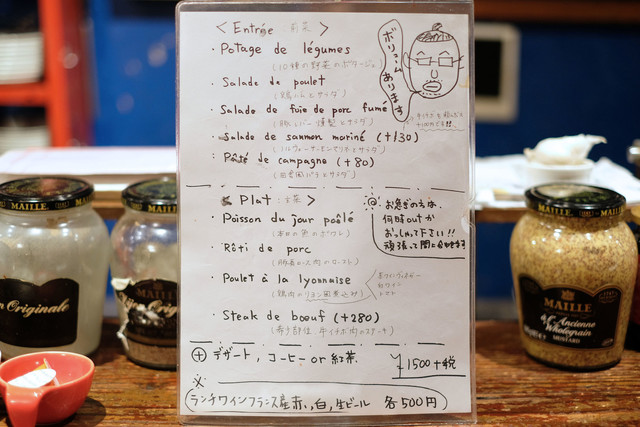 < Entrée 前菜 >
・Potage de légumes
(10種の野菜のポタージュ)
・Salade de poulet
(鶏ハムとサラダ)
・Salade de foie de porc fumé
(豚レバー燻製とサラダ)
・Salade de saumon mariné (+130)
(ノルウェーサーモンマリネとサラダ)
・Pâté de campagne (+80)
(田舎風パテとサラダ)
ボリュームあります
< Plat 主菜 >
・Poisson du jour poêlé
(本日の魚のポワレ)
・Rôti de porc
(豚肩ロース肉のロースト)
・Poulet à la lyonnaise
(鶏肉のリヨン風煮込み)
白ワインヴィネガー
白ワイン
トマト
・Steak de bœuf (+280)
(希少部位 牛イチボ肉のステーキ)
お急ぎの方は、
何時outか
おっしゃて下さい!!
頑張って間に合わせます
⊕ デザート, コーヒー or 紅茶
¥1500+税
※
ランチワインフランス産赤,白,生ビール 各500円
MAILLE
Originale
MAILLE
Dijon Originale
MAILLE
MAILLE
à l'Ancienne
Wholegrain
MUSTARD